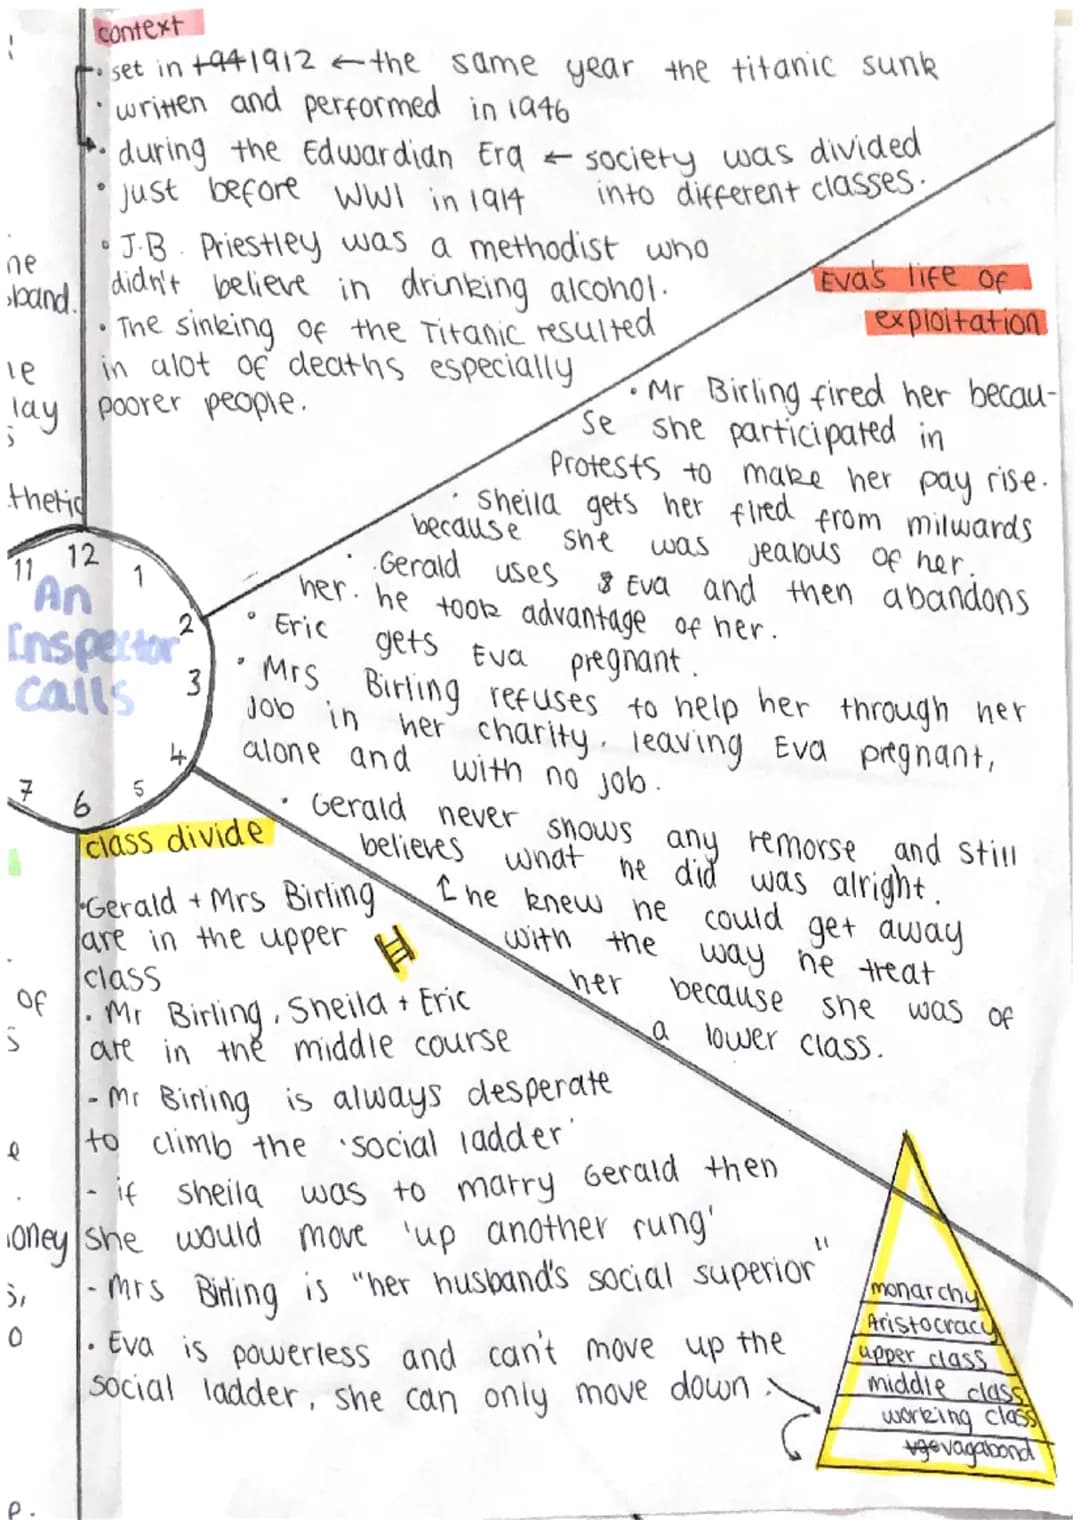 context
• set in 1941912 ← the same year the titanic sunk
• written and performed in 1946
• during the Edwardian Era ← society was divided
into different classes.
• just before WW1 in 1914
• J.B. Priestley was a methodist who
didn't believe in drinking alcohol.
• The sinking of the Titanic resulted
in alot of deaths especially
poorer people.
Eva's life of
exploitation
• Mr Birling fired her becau-
se she participated in
Protests to make her pay rise.
• Sheila gets her fired from milwards
because she was jealous of her.
• Gerald uses & Eva and then abandons
her. he took advantage of her.
• Eric gets Eva pregnant.
• Mrs Birling refuses to help her through her
Job in her charity, leaving Eva pregnant,
alone and with no job.
• Gerald never shows any remorse and still
believes what he did was alright.
↑ he knew he could get away
with the way he treat
her because she was of
a lower class.
12
11
1
2
3
4
5
6
7
An
Inspector
calls
class divide
• Gerald + Mrs Birling
are in the upper
class
• Mr Birling, Sheila + Eric
are in the middle course
- Mr Birling is always desperate
to climb the 'social ladder'
- if sheila was to marry Gerald then
she would move 'up another rung'
- Mrs Birling is "her husband's social superior"
• Eva is powerless and can't move up the
social ladder, she can only move down.
monarchy
Aristocracy
upper class
middle class
working class
vagabond
ne
sband.
ie
lay
s
thetic
of
s
e
oney
s,
o
p.